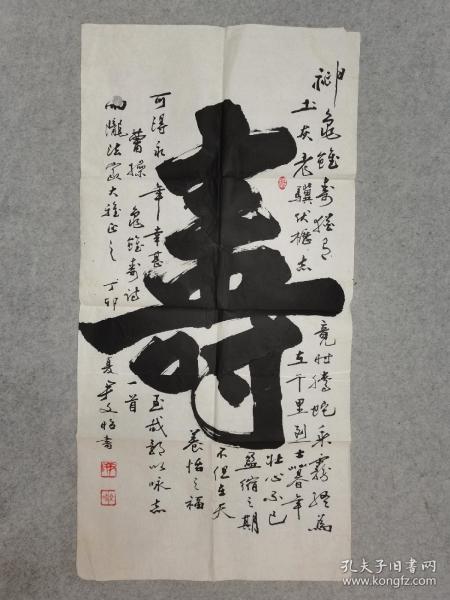 壽
神龜雖壽猶有
竟時騰蛇乘霧終為
土灰老驥伏櫪志
在千里烈士暮年
壯心不已
盈縮之期
不但在天
養怡之福
可得永年幸甚
至哉歌以咏志
曹操 龜雖壽詩
一首
法家大雅正之 丁卯
夏 書
孔夫子旧书网
www.kongfz.com